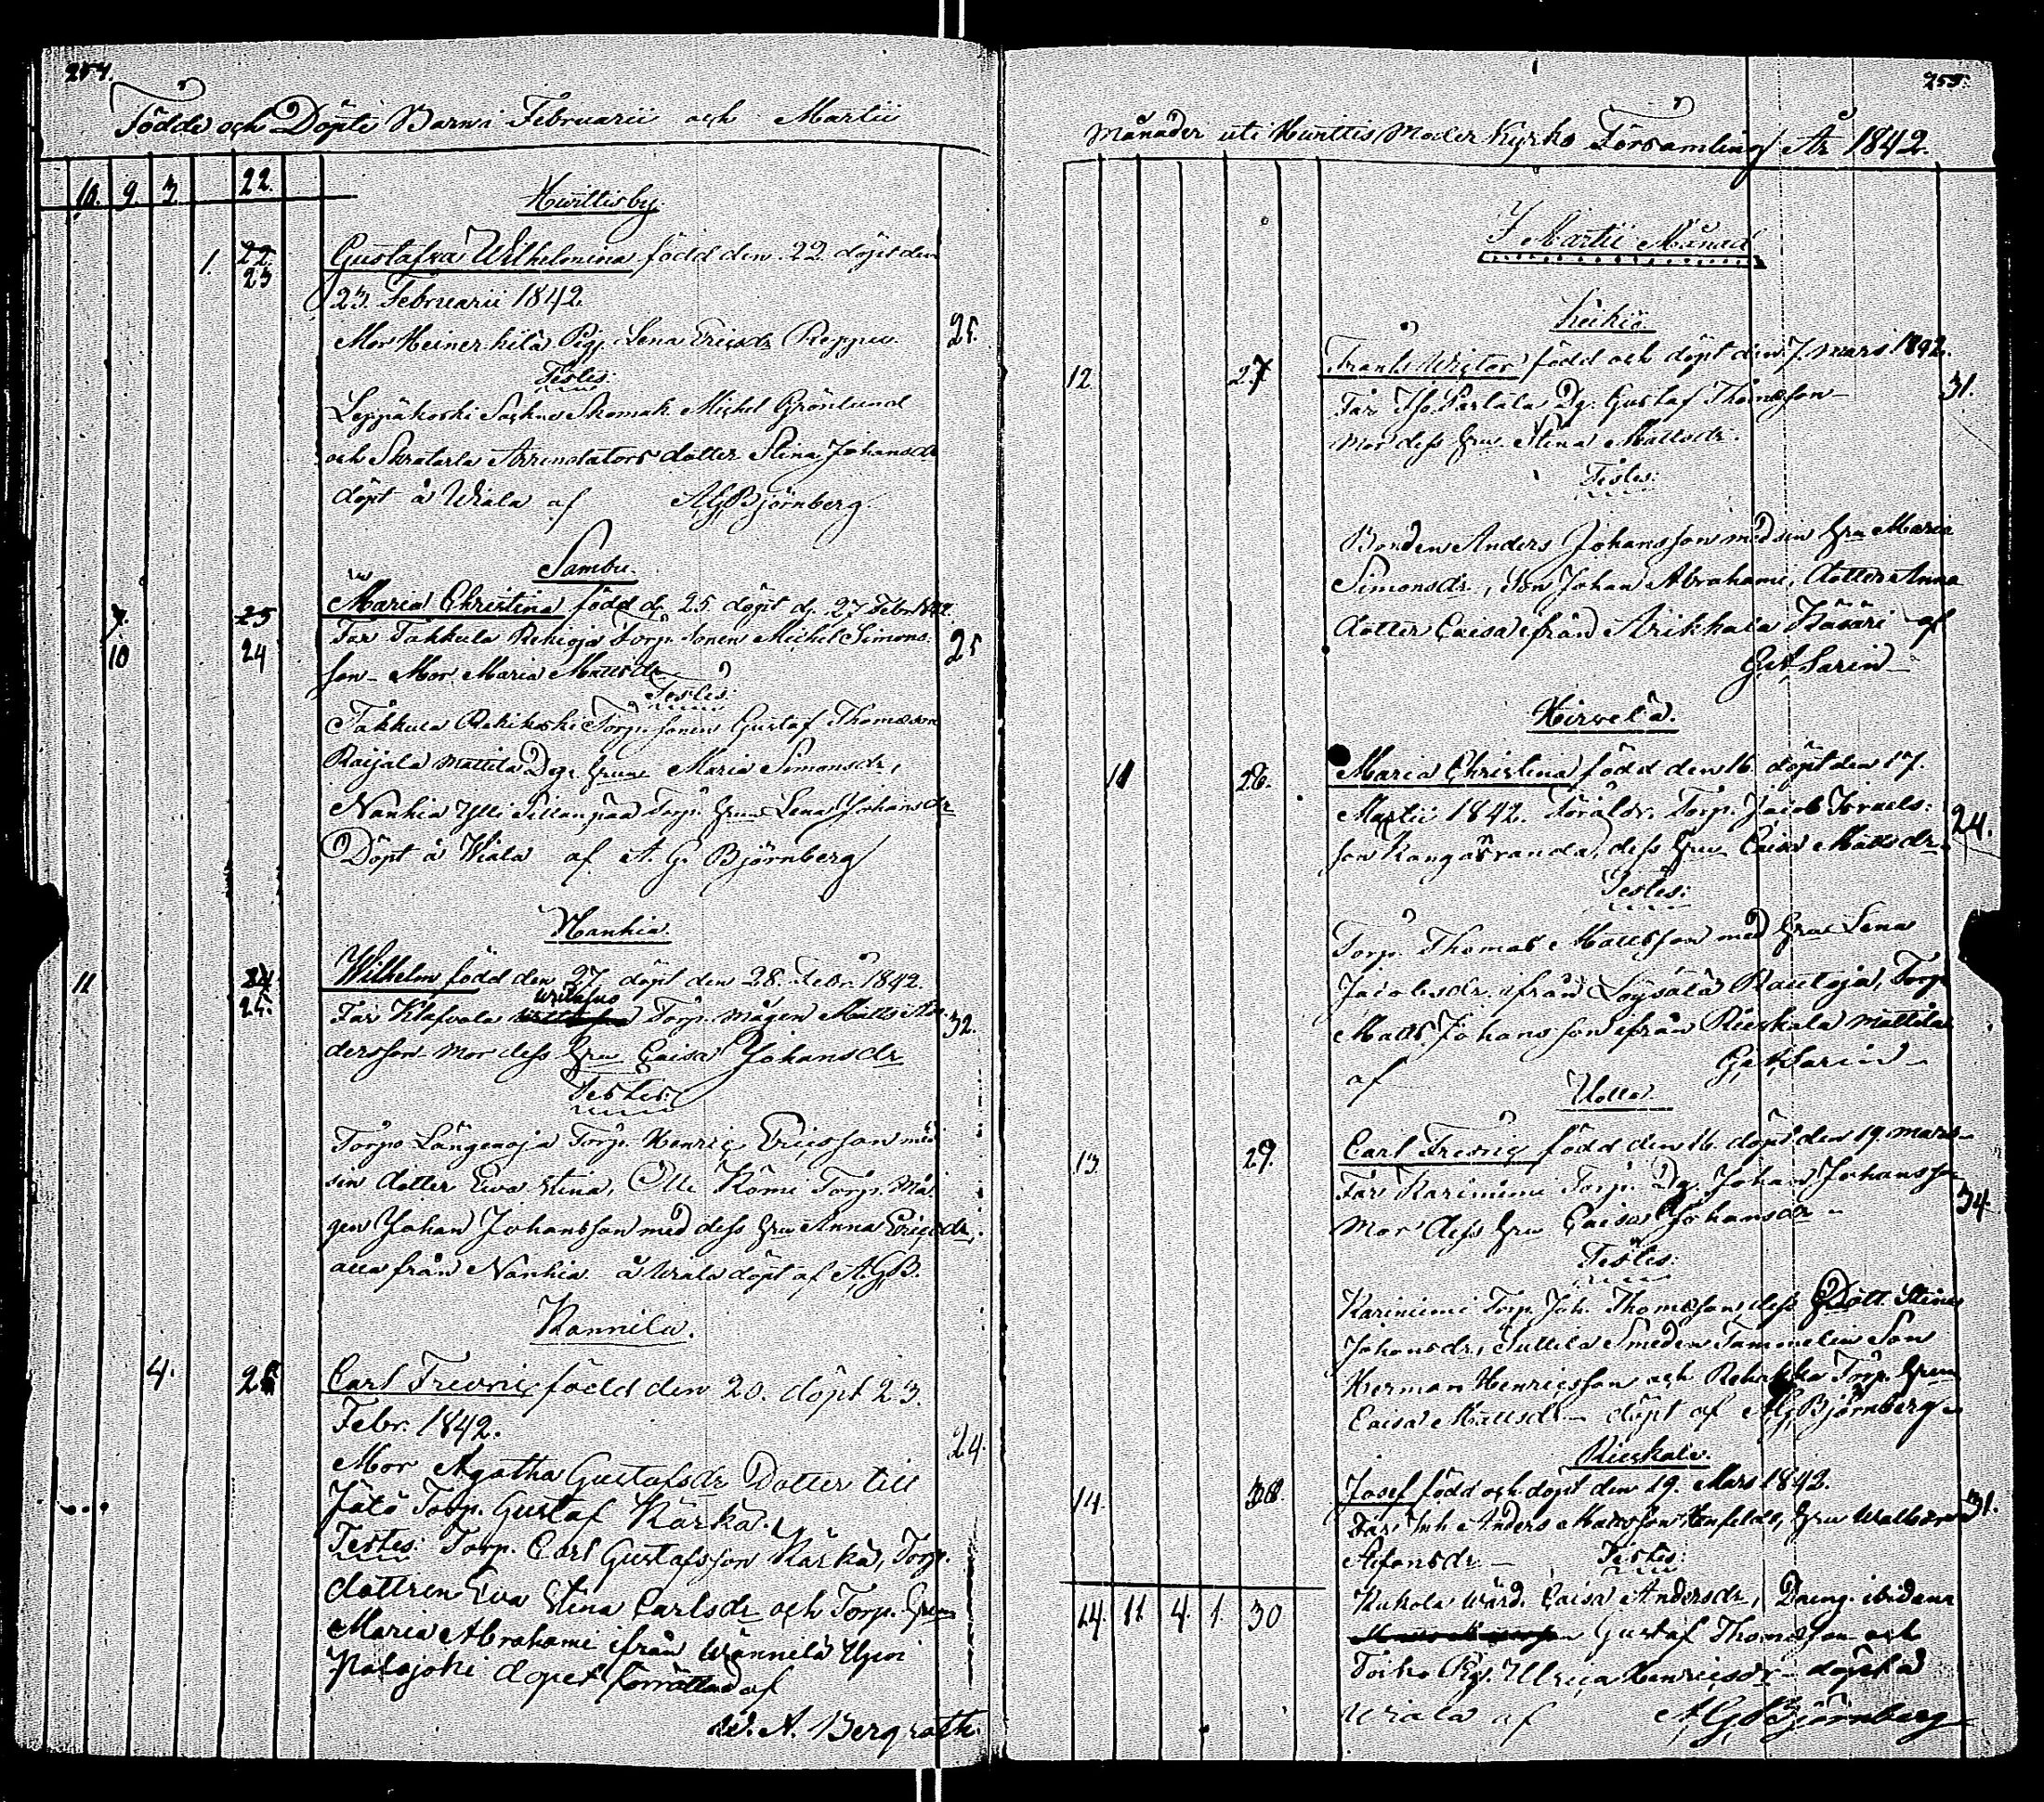 254.
Födde och Döpte Barn i Februarii och Martii
10. 9. 3. 22.
Hwittisby.
1. 22. Gustafva Wilhelmina född den 22. döpt den
23 23. Februarii 1842.
Mor Heinerkilä Pig. Lena Ericsdr 25.
Testes:
Leppäkoski Sockne Skomak. Michel Grönlund
och Skratarla Arrendators dotter Stina Johansdr
döpt å Wiala af A.G. Björnberg.
Sambu.
25 Maria Christina född d. 25 döpt d. 27 Febr. 1842.
10 24 Far Takkula Rekioja Torp. sonen Michel Simons- 25
son – Mor Maria Mattsdr
Testes:
Takkula Torp. sonen Gustaf Thomasson
Raijala Mattila Dg. hustru Maria Simonsdr,
Nanhia Ylli Sillanpää Torp. hru Lena Johansdr
Döpt å Wiala af A. G. Björnberg
Nanhia.
11 Wilhelm född den 27. döpt den 28. Febr. 1842.
25. Far Torp. mågen Matts An- 32.
dersson – mor dess hru Caisa Johansdr
Testes:
Torpo Långenoja Torp. Henric Ericsson med
sin dotter Eva Stina, Olli Kömi Torp. Må-
gen Johan Johansson med dess hru Anna Ericsdr,
alla från Nanhia å Wiala döpt af A.G.B.
Kannila.
4. 26 Carl Fredric född den 20. döpt 23.
Febr. 1842. 24.
Mor Agatha Gustafsdr Dotter till
Torp. Gustaf Kärkä.
Testes: Torp. Carl Gustafsson Kärkä, Torp.
dottren Eva Stina Carlsdr och Torp. hrun
Maria Abrahami ifrån Wännelä
Palojoki döpet förrättad af
A. Bergroth.
255.
Månader uti Hwittis Moder Kyrko Församling År 1842.
I Martii Månad
Keikiö.
12 27 Frants Wictor född och döpt den 7. mars 1842.
Far Dg. Gustaf Thomasson – 31.
mor dess hru Stina Mattsdr.
Testes:
Bonden Anders Johansson med sin hru Maria
Simonsdr, Son Johan Abrahami, dotter Anna
dotter Caisa från af
G.A. Sarin –
Hirvelä.
11 28. Maria Christina född den 16. döpt den 17.
Martii 1842. Föräldr. Torp. Jacob Israels- 24.
son Kangasranda, dess hru Caisa Mattsdr.
Testes:
Torp. Thomas Mattsson med hru Lena
Jacobsdr. ifrån Löysälä Rautoja, Torp.
Matts Johansson ifrån Rieskala Mattila
af G.A. Sarin –
13. 29. Carl Fredric född den 16. döpt den 19. mars –
Far Kariniemi Torp. Dg. Johan Johansson 34.
mor dess hru Caisa Johansdr –
Testes:
Kariniemi Torp. Joh. Thomasson, dess Dott. Stina
Johansdr, Suttila Smeden Tammelin Son
Herman Henricsson och Torp. hrun
Caisa Mattsdr – döpt af A.G. Björnberg –
Rieskala.
14. Josef född och döpt den 19. Mars 1842.
Far Inh. Anders Mattsson hru Walborg 31.
Testes:
14. 11. 4. 1. 30 Kukola Wärd. Caisa Andersdr, Dreng. ibidem
Gustaf Thomasson och
Pig. Ulrica Henricsdr – döpt å
Wiala af A.G. Björnberg